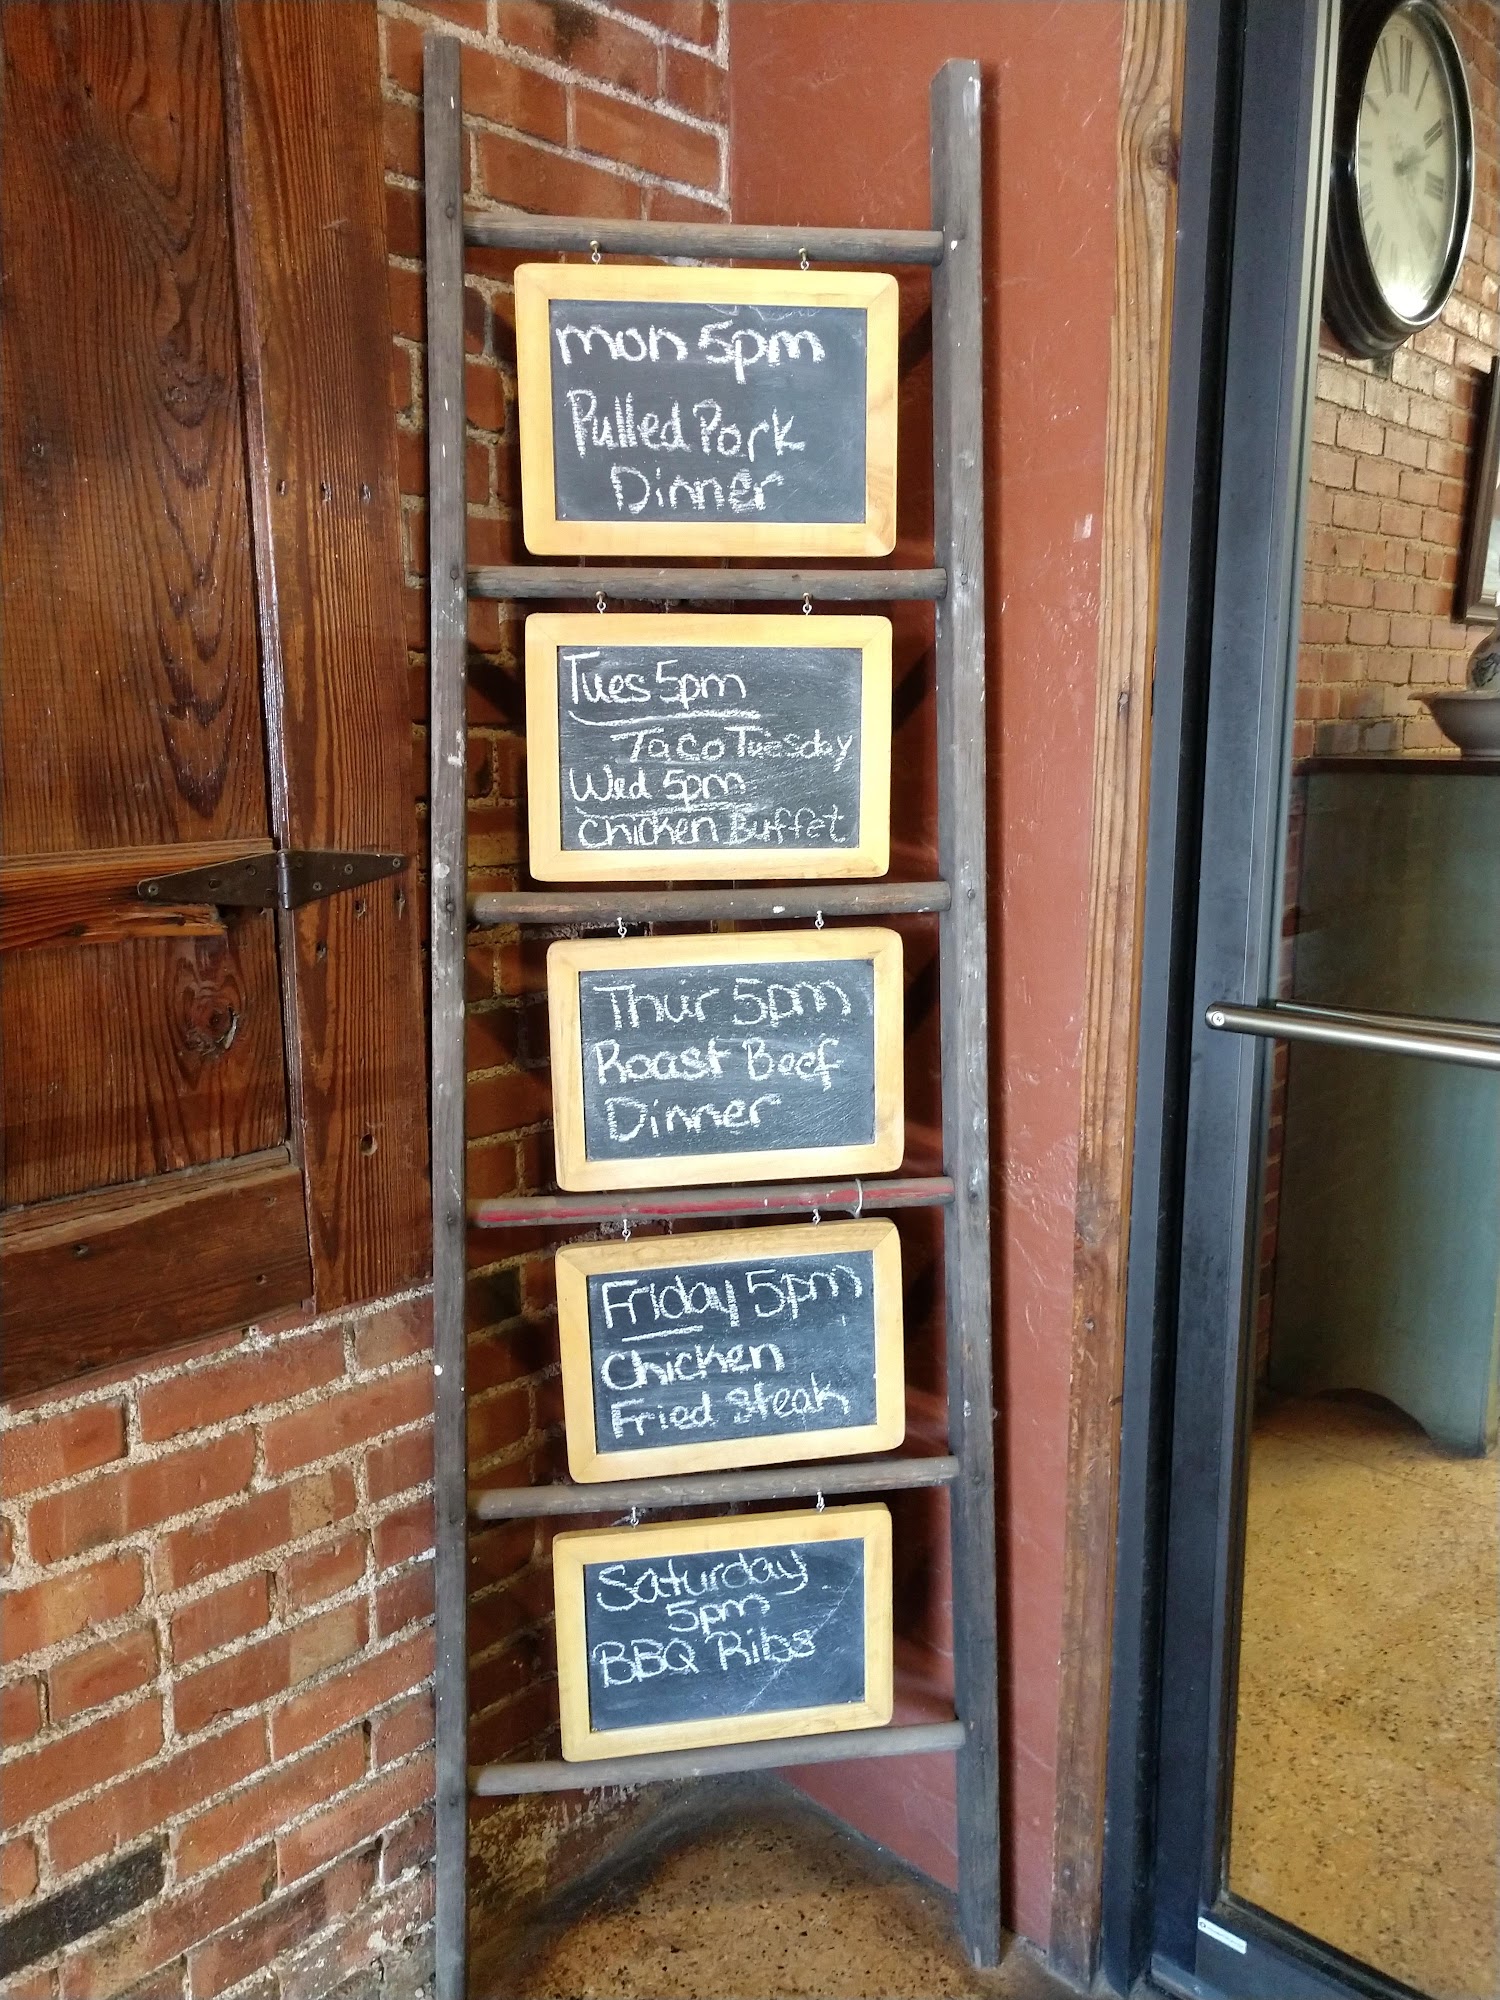 mon 5pm
Pulled Pork
Dinner
Tues 5pm
Taco Tuesday
Wed 5pm
Chicken Buffet
Thur 5pm
Roast Beef
Dinner
Friday 5pm
Chicken
Fried Steak
Saturday
5pm
BBQ Ribs